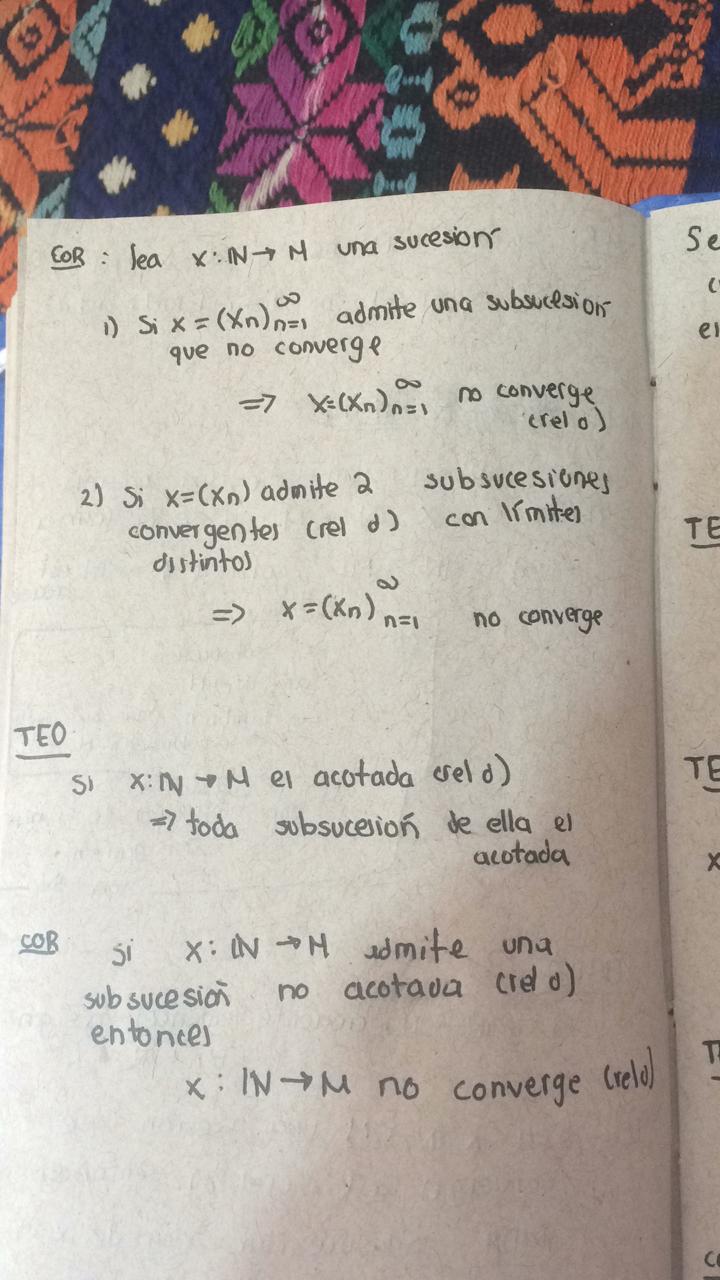 COR : Sea x: ℕ → M una sucesion
1) Si x = (xn)_{n=1}^∞ admite una subsucesion
que no converge
⇒ x=(xn)_{n=1}^∞ no converge
(rel d)
2) Si x=(xn) admite 2 subsucesiones
convergentes (rel d) con límites
distintos
⇒ x = (xn)_{n=1}^∞ no converge
TEO
Si x: ℕ → M es acotada (rel d)
⇒ toda subsucesión de ella es
acotada
COR Si x: ℕ → M admite una
subsucesión no acotada (rel d)
entonces
x : ℕ → M no converge (rel d)
Se
TE
TE
x